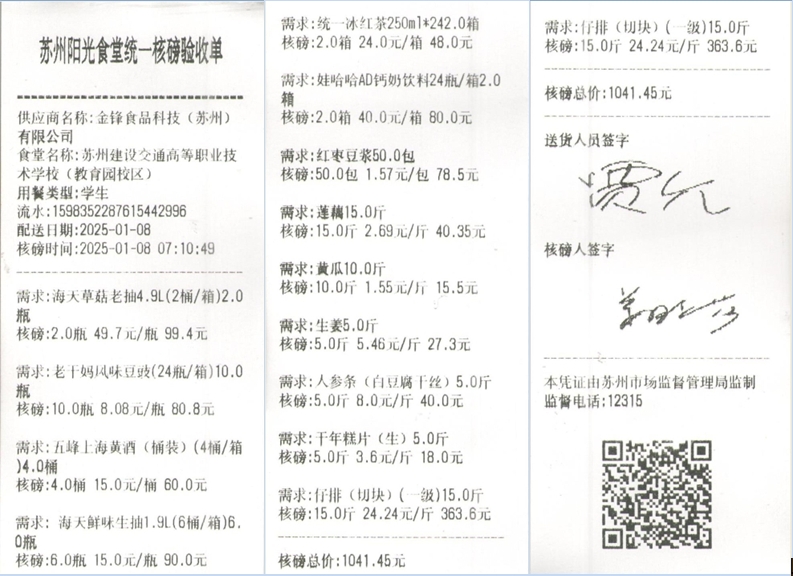 苏州阳光食堂统一核磅验收单
供应商名称:金锋食品科技（苏州）
有限公司
食堂名称:苏州建设交通高等职业技
术学校（教育园校区）
用餐类型:学生
流水:1598352287615442996
配送日期:2025-01-08
核磅时间:2025-01-08 07:10:49
需求:海天草菇老抽4.9L(2桶/箱)2.0
瓶
核磅:2.0瓶 49.7元/瓶 99.4元
需求:老干妈风味豆豉(24瓶/箱)10.0
瓶
核磅:10.0瓶 8.08元/瓶 80.8元
需求:五峰上海黄酒（桶装）(4桶/箱
)4.0桶
核磅:4.0桶 15.0元/桶 60.0元
需求: 海天鲜味生抽1.9L(6桶/箱)6.
0瓶
核磅:6.0瓶 15.0元/瓶 90.0元
需求:统一冰红茶250ml*242.0箱
核磅:2.0箱 24.0元/箱 48.0元
需求:娃哈哈AD钙奶饮料24瓶/箱2.0
箱
核磅:2.0箱 40.0元/箱 80.0元
需求:红枣豆浆50.0包
核磅:50.0包 1.57元/包 78.5元
需求:莲藕15.0斤
核磅:15.0斤 2.69元/斤 40.35元
需求:黄瓜10.0斤
核磅:10.0斤 1.55元/斤 15.5元
需求:生姜5.0斤
核磅:5.0斤 5.46元/斤 27.3元
需求:人参条（白豆腐干丝）5.0斤
核磅:5.0斤 8.0元/斤 40.0元
需求:干年糕片（生）5.0斤
核磅:5.0斤 3.6元/斤 18.0元
需求:仔排（切块）(一级)15.0斤
核磅:15.0斤 24.24元/斤 363.6元
核磅总价:1041.45元
需求:仔排（切块）(一级)15.0斤
核磅:15.0斤 24.24元/斤 363.6元
核磅总价:1041.45元
送货人员签字
核磅人签字
本凭证由苏州市场监督管理局监制
监督电话:12315